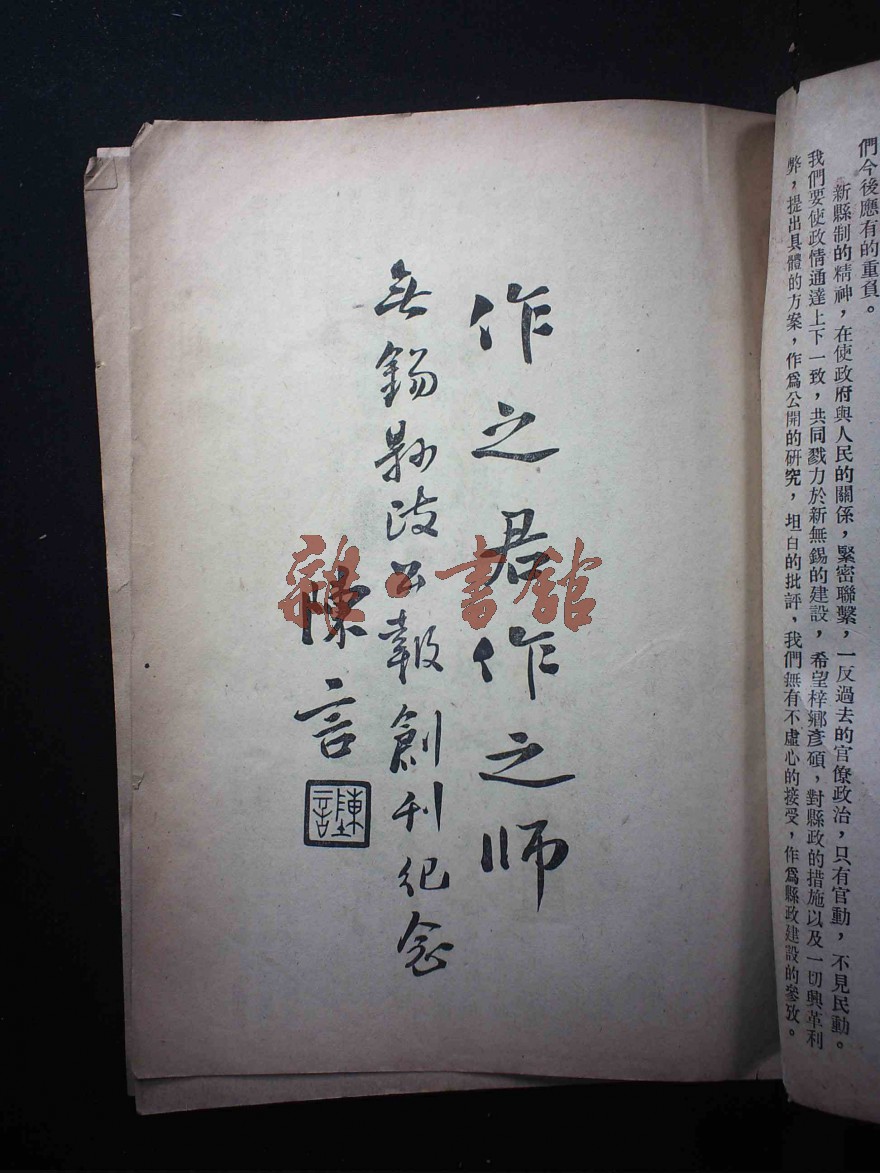 們今後應有的重負。
新縣制的精神，在使政府與人民的關係，緊密聯繫，一反過去的官僚政治，只有官動，不見民動。
我們要使政情通達上下一致，共同戮力於新無錫的建設，希望梓鄉彥碩，對縣政的措施以及一切興革利
弊，提出具體的方案，作爲公開的研究，坦白的批評，我們無有不虛心的接受，作爲縣政建設的參攷。
作之君作之师
無錫縣政公報創刊紀念
陳言
雜書館